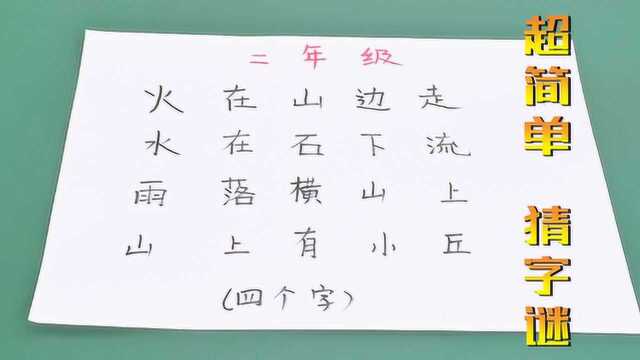 二年级
火在山边走
水在石下流
雨落横山上
山上有小丘
(四个字)
超简单 猜字谜